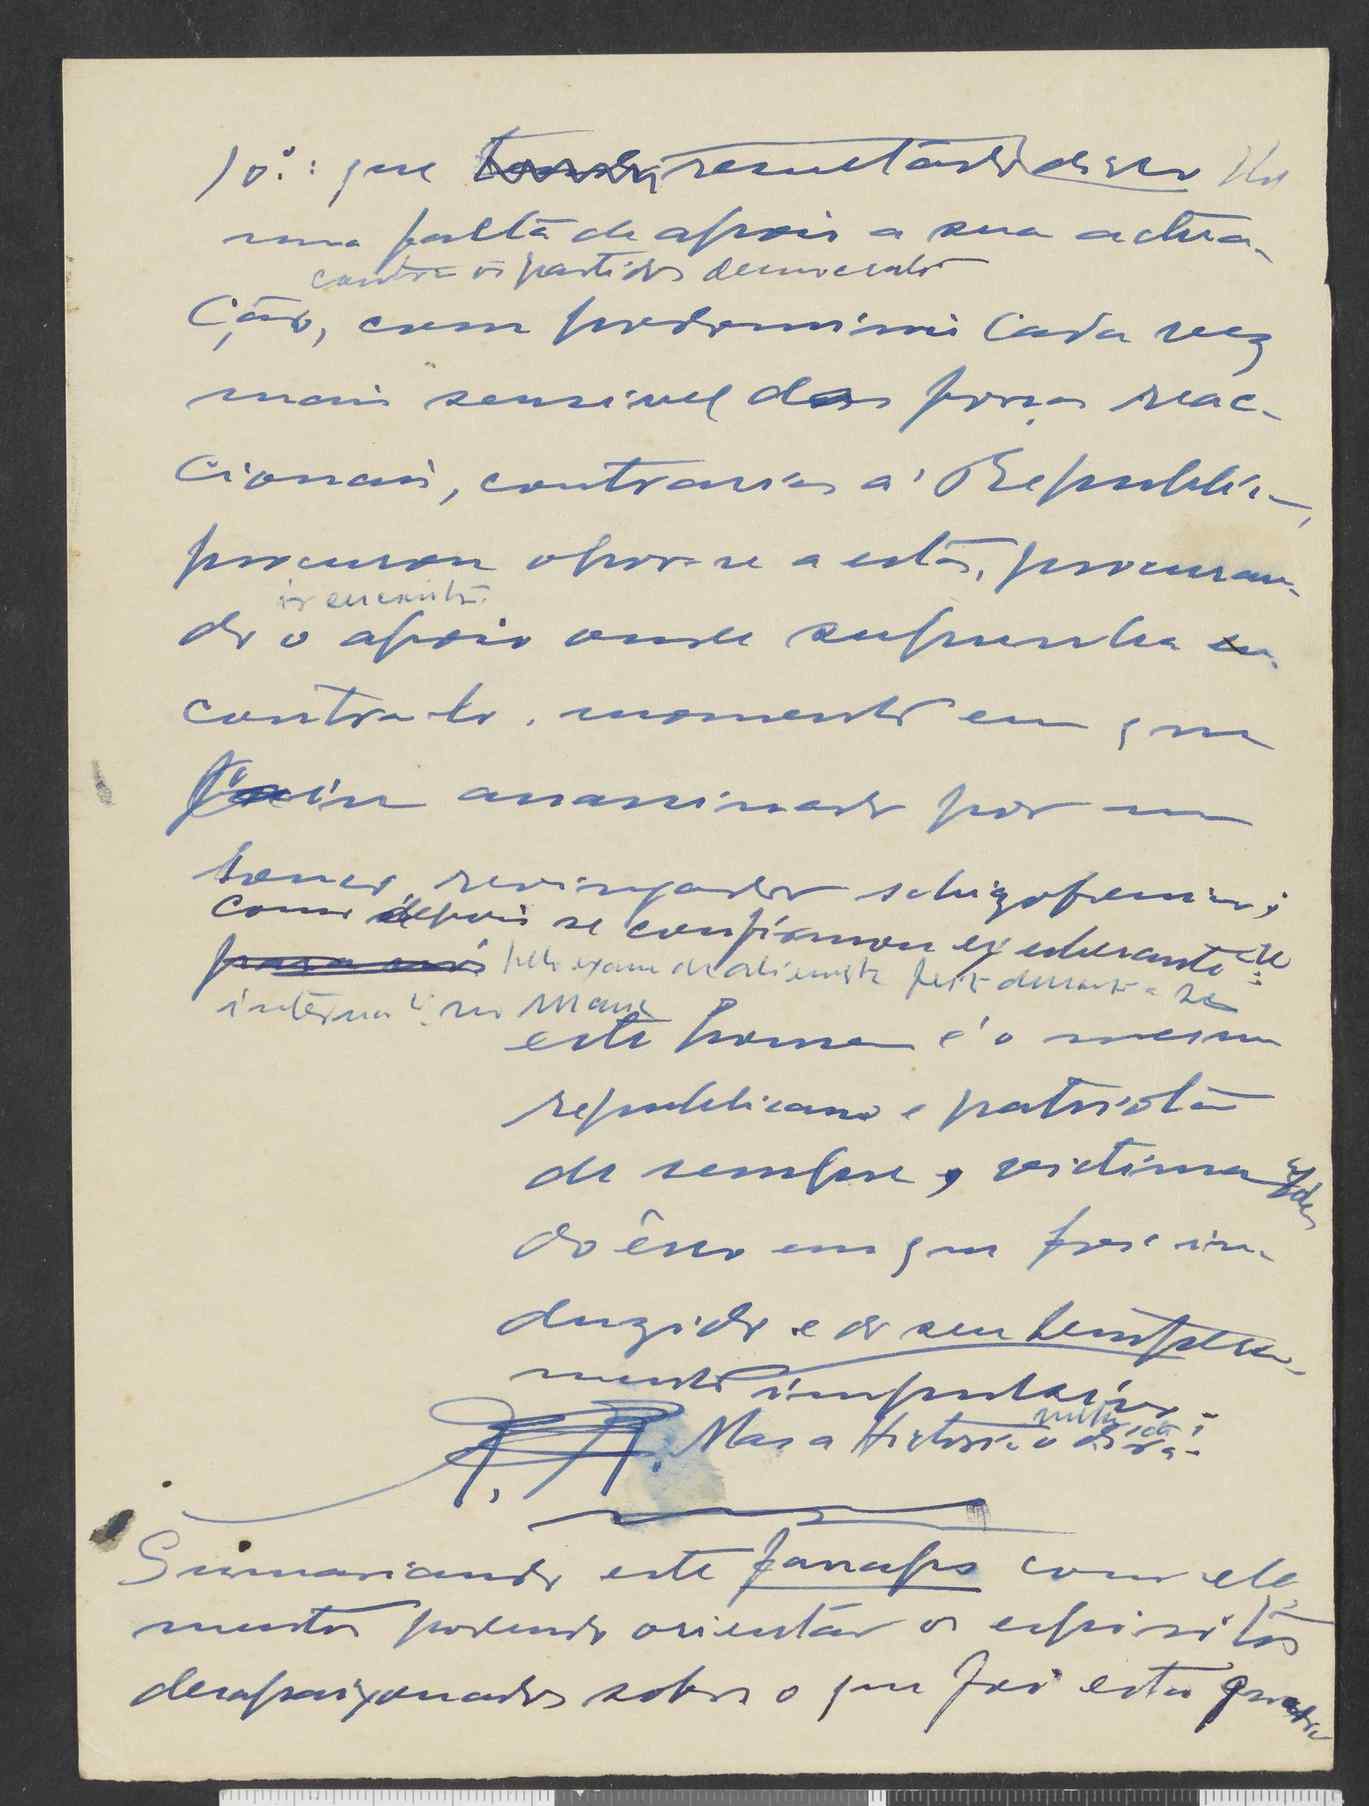 10.º: que resultando disso
uma falta de apoio a sua actua-
contra os partidos democrat
ção, com predominio cada vez
mais sensivel das forças reac-
cionais, contrarias á Republica,
procurou opor-se a estas, procuran-
do o apoio onde supunha en-
contra-lo, momento em que
foi assassinado por um
louco, schizofrenico,
como depois se confirmou exuberante
pelo exame
interna no
este homem é o mesmo
republicano e patriota
de sempre, victima
do êrro em que fôse in-
duzido e do seu tempera-
mento impulsivo.
Mas a Historia o dirá.
Sumariando este farrapo com ele-
mentos podendo orientar os espiritos
desapaixonados sobre o que foi esta